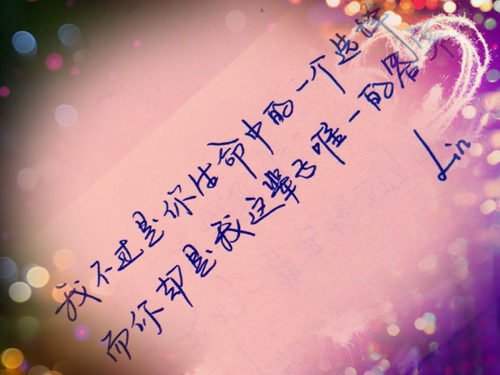 我不过是你生命中的一个选择
而你却是我这辈子唯一的答案
Lin